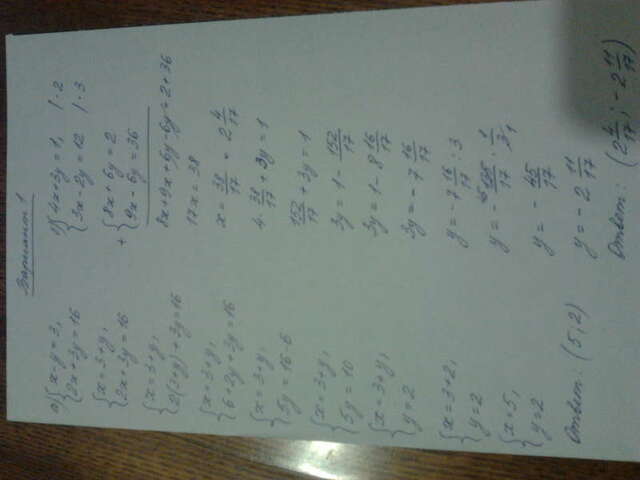 Вариант 1
а) {x-y=3,
2x+3y=16
{x=3+y,
2x+3y=16
{x=3+y,
2(3+y)+3y=16
{x=3+y,
6+2y+3y=16
{x=3+y,
5y=16-6
{x=3+y,
5y=10
{x=3+y,
y=2
{x=3+2,
y=2
{x=5,
y=2
Ответ: (5;2)
{4x+3y=1, |·2
3x-2y=12 |·3
+{8x+6y=2
9x-6y=36
8x+9x+6y-6y=2+36
17x=38
x=38/17=2 4/17
4·38/17+3y=1
152/17+3y=1
3y=1-152/17
3y=1-8 16/17
3y=-7 16/17
y=-7 16/17:3
y=-135/17·1/3
y=-45/17
y=-2 11/17
Ответ: (2 4/17; -2 11/17)